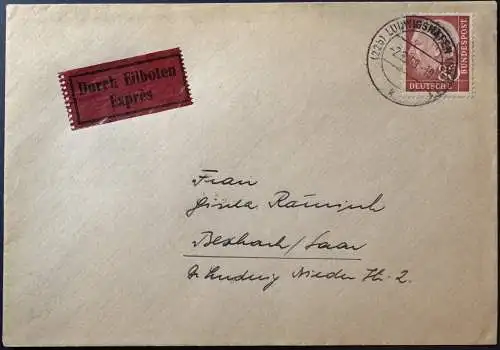 Durch Eilboten
Exprès
(22b) LUDWIGSHAFEN
DEUTSCHE
BUNDESPOST
Frau
Gisela
Bexbach/Saar
Ludwig Nieder Str. 2.